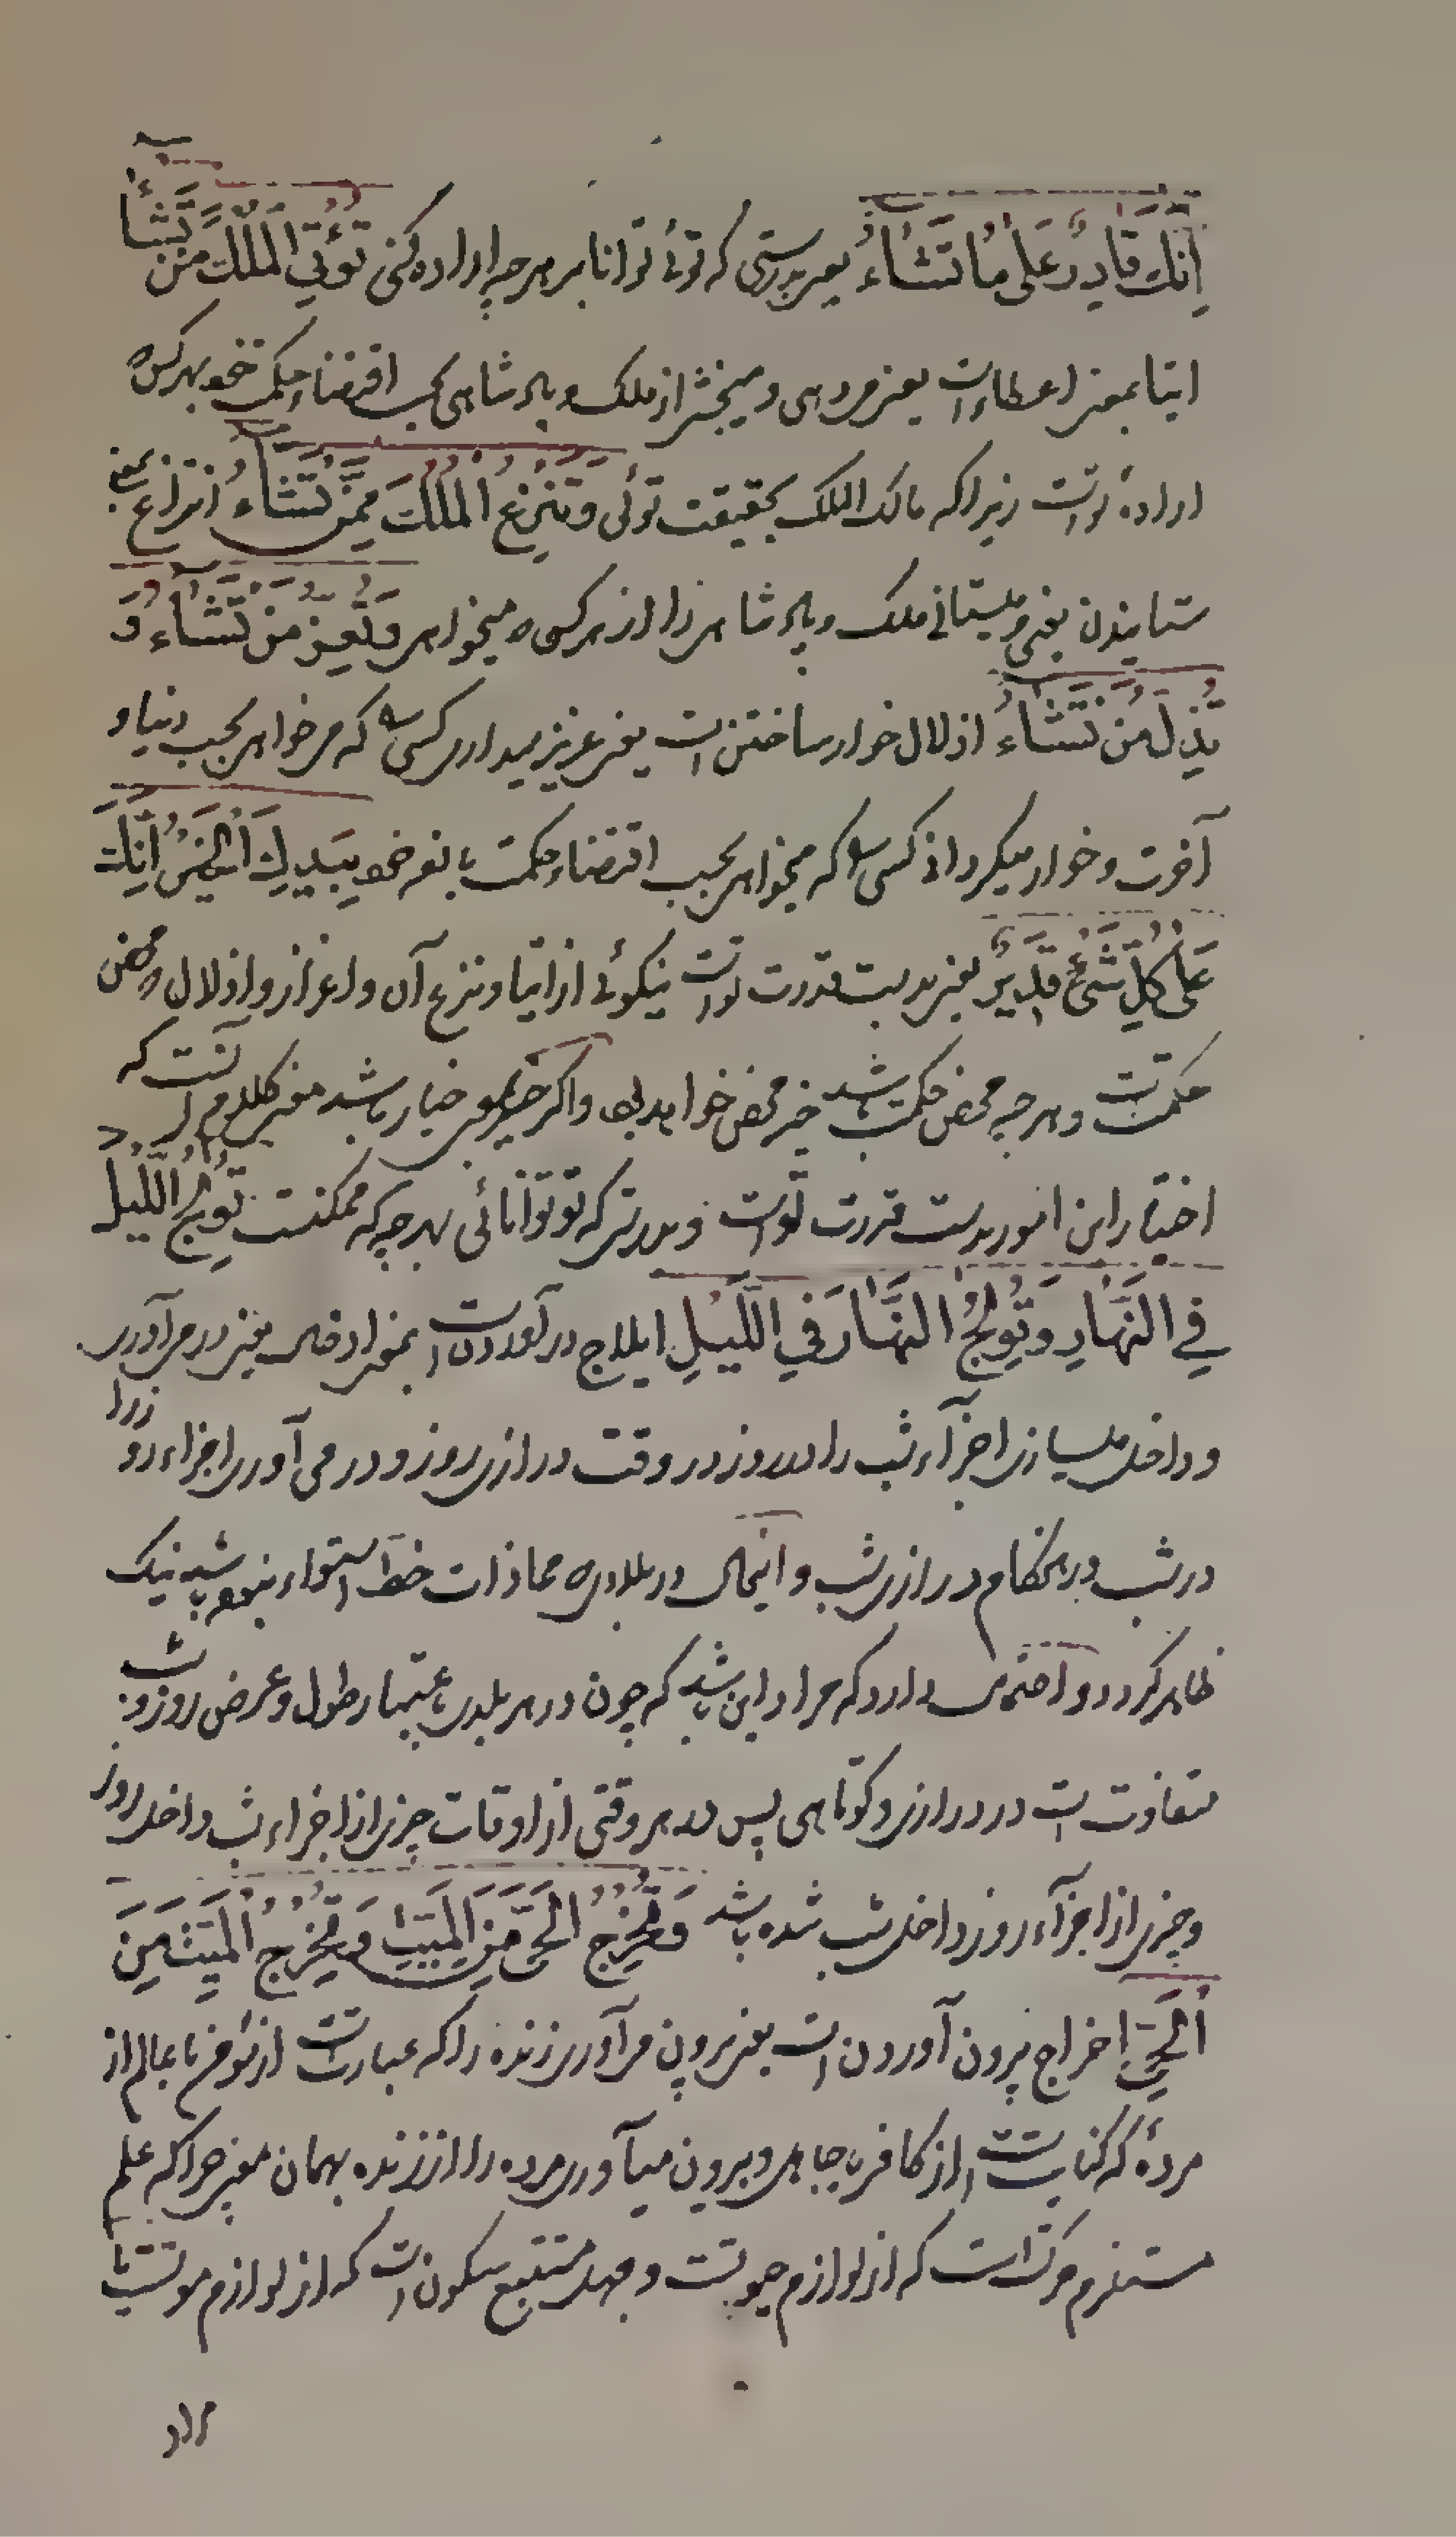 اِنَّكَ قَادِرٌ عَلىٰ مَا تَشَاءُ یعنی بدرستی که توئی توانا بر هر چه اراده کنی تُؤْتِي الْمُلْكَ مَنْ تَشَاءُ
ایتا بمعنی اعطاء است یعنی میدهی و میبخشی از ملک و پادشاهی بحسب اقتضاء حکمت خود بهر کس که
ارادهٔ تو است زیرا که مالک الملک بحقیقت توئی وَتَنْزِعُ الْمُلْكَ مِمَّنْ تَشَاءُ انتزاع بمعنی
ستانیدن یعنی و میستانی ملک و پادشاهی را از هر کس که میخواهی وَتُعِزُّ مَنْ تَشَاءُ وَ
تُذِلُّ مَنْ تَشَاءُ اذلال خوار ساختن است یعنی عزیز میداری کسی را که میخواهی بحسب دنیا و
آخرت و خوار میکردانی کسی را که میخواهی بحسب اقتضاء حکمت بالغه خود بِيَدِكَ الْخَيْرُ اِنَّكَ
عَلىٰ كُلِّ شَيْءٍ قَدِيرٌ یعنی بدست قدرت تو است نیکوئی از ایتا و نزع آن و اعزاز و اذلال که محض
حکمتست و هر چه محض حکمت باشد خیر محض خواهد بود و اکر خیر بمعنی خیار باشد معنی کلام آنست که
اختیار این امور بدست قدرت تو است و بدرستی که تو توانائی بهر چه که ممکنست تُولِجُ اللَّيْلَ
فِي النَّهَارِ وَتُولِجُ النَّهَارَ فِي اللَّيْلِ ایلاج در آوردن است بمعنی ادخال یعنی در می آوری
و داخل میسازی اجزآء شب را در روز در وقت درازی روز و در می آوری اجزاء روز را
در شب در هنکام درازی شب و اینحال در بلادی که محاذات خط استواء نبوده باشد نیک
ظاهر کردد و احتمال دارد که مراد این باشد که چون در هر بلدی باعتبار طول و عرض روز و شب
متفاوت است در درازی و کوتاهی پس در هر وقتی از اوقات چیزی از اجزاء شب داخل روز
و چیزی از اجزآء روز داخل شب شده باشد وَتُخْرِجُ الْحَيَّ مِنَ الْمَيِّتِ وَتُخْرِجُ الْمَيِّتَ مِنَ
الْحَيِّ اخراج بیرون آوردن است یعنی بیرون می آوری زنده را که عبارتست از مؤمن یا عالم از
مردهٔ که کنایتست از کافر یا جاهل و بیرون میآوری مرده را از زنده بهمان معنی چرا که علم
مستلزم حرکت است که از لوازم حیوتست و جهل مستتبع سکون است که از لوازم موتست یا
مراد